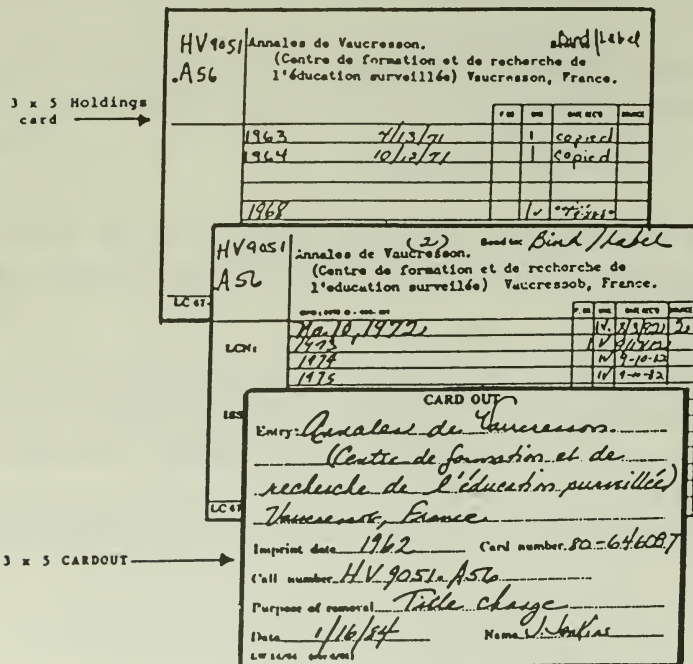 HV9051 Annales de Vaucresson. Bind/Label
.A56 (Centre de formation et de recherche de
l'éducation surveillée) Vaucresson, France.
3 x 5 Holdings
card
1963 4/13/71 1 copied
1964 10/12/71 1 copied
1968
LC 67-
HV9051 Annales de Vaucresson. (2) Bind/Label
A56 (Centre de formation et de recherche de
l'education surveillée) Vaucressob, France.
No. 10, 1972
LCN:
1973
1974 9-10-82
1975
CARD OUT
Entry: Annales de Vaucresson.
(Centre de formation et de
recherche de l'éducation surveillée)
Vaucresson, France
3 x 5 CARDOUT
Imprint date 1962 Card number 80-646087
Call number HV9051.A56
Purpose of removal Title change
Date 1/16/84 Name J. Jenkins